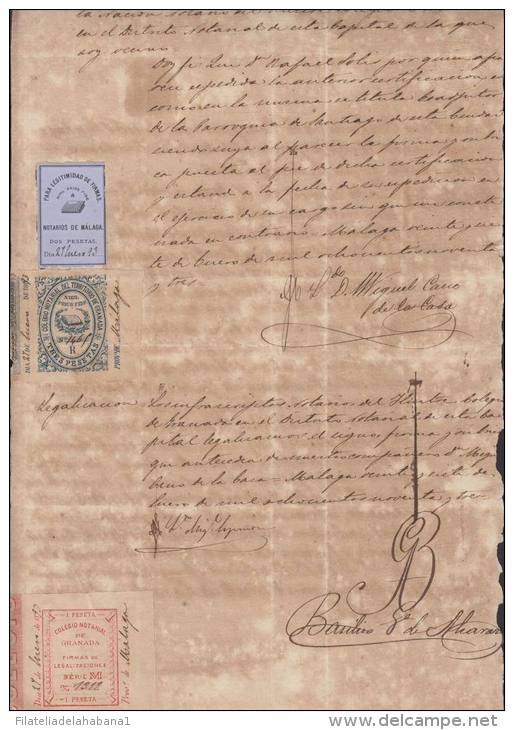 en el Distrito Notarial de esta Capital de la que
soy vecino
Doy fé que D. Rafael Solis por quien apa
rece expedida la anterior certificacion
como en la misma se titula Coadjutor
de la Parroquia de Santiago de esta
siendo suya al parecer la firma y rubri
ca puesta al pie de dicha certificacion
y estando a la fecha de su expedicion en
el ejercicio de su cargo sin que me conste
nada en contrario. Malaga veinte y sie
te de Enero de mil ochocientos noventa
y tres
L. D. Miguel Cano
de la Casa
PARA LEGITIMIDAD DE FIRMAS.
NIHIL PRIUS FIDE
NOTARIOS DE MÁLAGA.
DOS PESETAS.
Dia 27 Enero 93
COLEGIO NOTARIAL DEL TERRITORIO DE GRANADA
NIHIL PRIUS FIDE
R
TRES PESETAS
DIA 27 DE Enero DE 1893
PROV.ª DE Malaga
Legalizacion Los infrascriptos Notarios del Ilustre Colegio
de Granada en el Distrito Notarial de esta Ca
pital legalizamos el signo, firma y rubrica
que antecede de nuestro compañero D. Miguel
Cano de la Casa = Malaga veinte y siete de
Enero de mil ochocientos noventa y tres
1 PESETA
COLEGIO NOTARIAL
DE
GRANADA
FIRMAS DE
LEGALIZACIONES
SÉRIE M
N.º 1312
1 PESETA
Dia 27 de Enero de 1893
Prov.ª de Malaga
© Filateliadelahabana1
www.delcampe.net